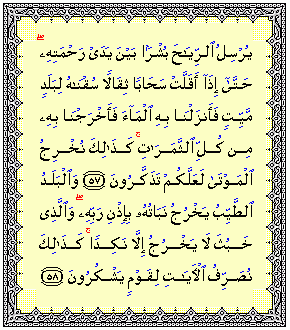 يُرْسِلُ ٱلرِّيَـٰحَ بُشْرًۢا بَيْنَ يَدَىْ رَحْمَتِهِۦ ۖ
حَتَّىٰٓ إِذَآ أَقَلَّتْ سَحَابًا ثِقَالًا سُقْنَـٰهُ لِبَلَدٍ
مَّيِّتٍ فَأَنزَلْنَا بِهِ ٱلْمَآءَ فَأَخْرَجْنَا بِهِۦ
مِن كُلِّ ٱلثَّمَرَٰتِ ۚ كَذَٰلِكَ نُخْرِجُ
ٱلْمَوْتَىٰ لَعَلَّكُمْ تَذَكَّرُونَ ﴿٥٧﴾ وَٱلْبَلَدُ
ٱلطَّيِّبُ يَخْرُجُ نَبَاتُهُۥ بِإِذْنِ رَبِّهِۦ ۖ وَٱلَّذِى
خَبُثَ لَا يَخْرُجُ إِلَّا نَكِدًا ۚ كَذَٰلِكَ
نُصَرِّفُ ٱلْـَٔايَـٰتِ لِقَوْمٍ يَشْكُرُونَ ﴿٥٨﴾